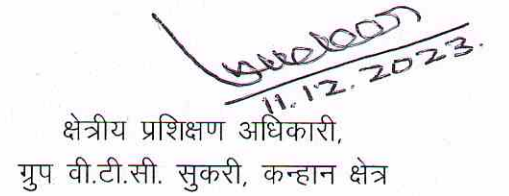 11.12.2023.
क्षेत्रीय प्रशिक्षण अधिकारी,
ग्रुप वी.टी.सी. सुकरी, कन्हान क्षेत्र